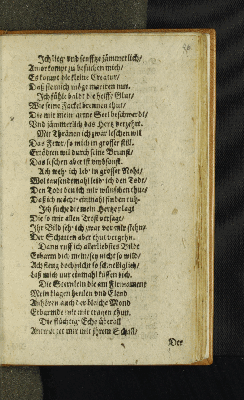 Ich lieg' und seufftze jämmerlich/
An ort kompt zu besuchen mich/
Es kompt die kleine Creatur/
Daß sie mich möge martren nur.
Ich fühle bald die heisse Glut/
Wie seine Fackel brennen thut/
Die mir mein arme Seel beschwerdt/
Und jämmerlich das Hertz verzehrt.
Mit Thränen ich zwar leschen wil
Das Fewr/ so mich in grosser still.
Ertödten wil durch seine Brunst/
Das leschen aber ist umbsonst.
Ach weh/ ich leb' in grosser Noht/
Wol tausendmahl leid' ich den Todt/
Den Todt den ich mir wünschen thu/
Daß ich möcht' einmahl finden ruh.
Ich suche die mein Hertze plagt
Die so mir allen Trost versagt/
Ihr Bild seh' ich zwar vor mir stehn/
Der Schatten aber thut vergehn.
Dann ruff ich allerliebstes Bilde
Erbarm dich mein/sey nicht so wild/
Ach fleug doch nicht so schnelliglich/
Laß mich nur einmahl küssen dich.
Die Sternlein die am Firmament
Mein klagen heulen und Elend
Anhören auch der bleiche Mond
Erbarmt mir mit tragen thun.
Die flüchtig' Echo überall
Antwortet mir mit ihrem Schall/
Der